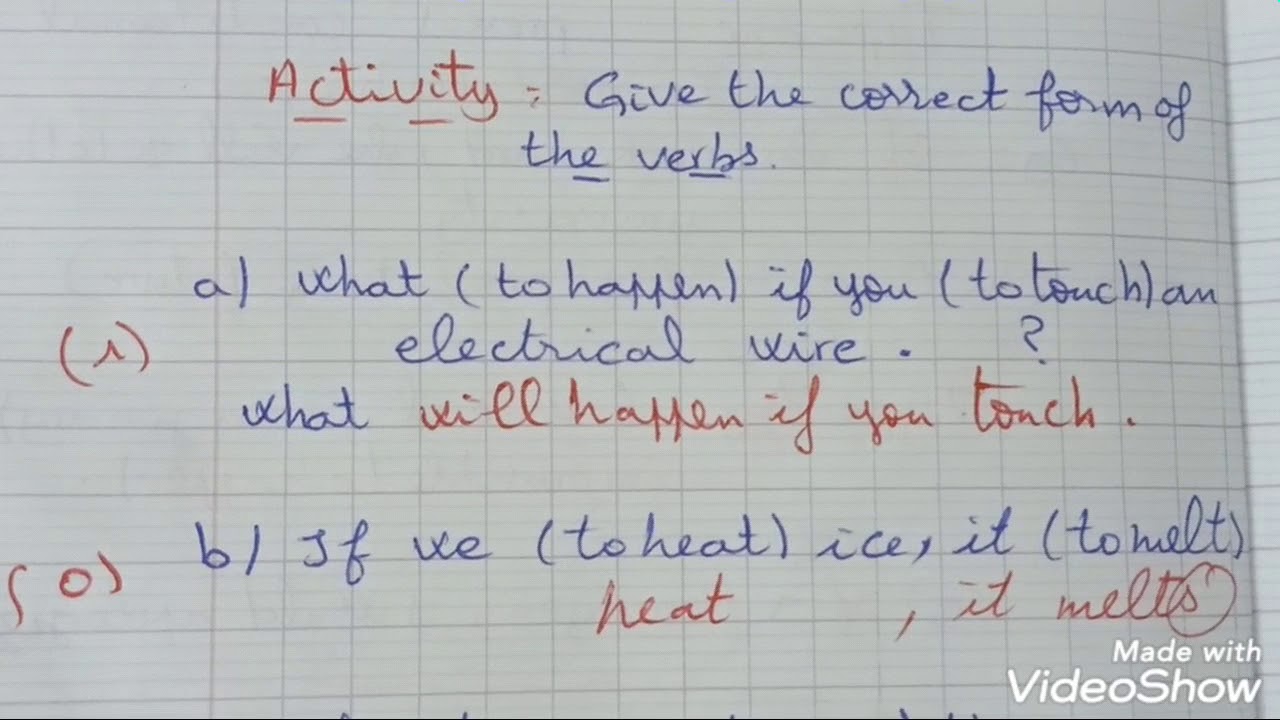 Activity : Give the correct form of
the verbs.
a) what (to happen) if you (to touch) an
(1) electrical wire . ?
what will happen if you touch .
b) If we (to heat) ice, it (to melt)
(0) heat , it melts
Made with
VideoShow